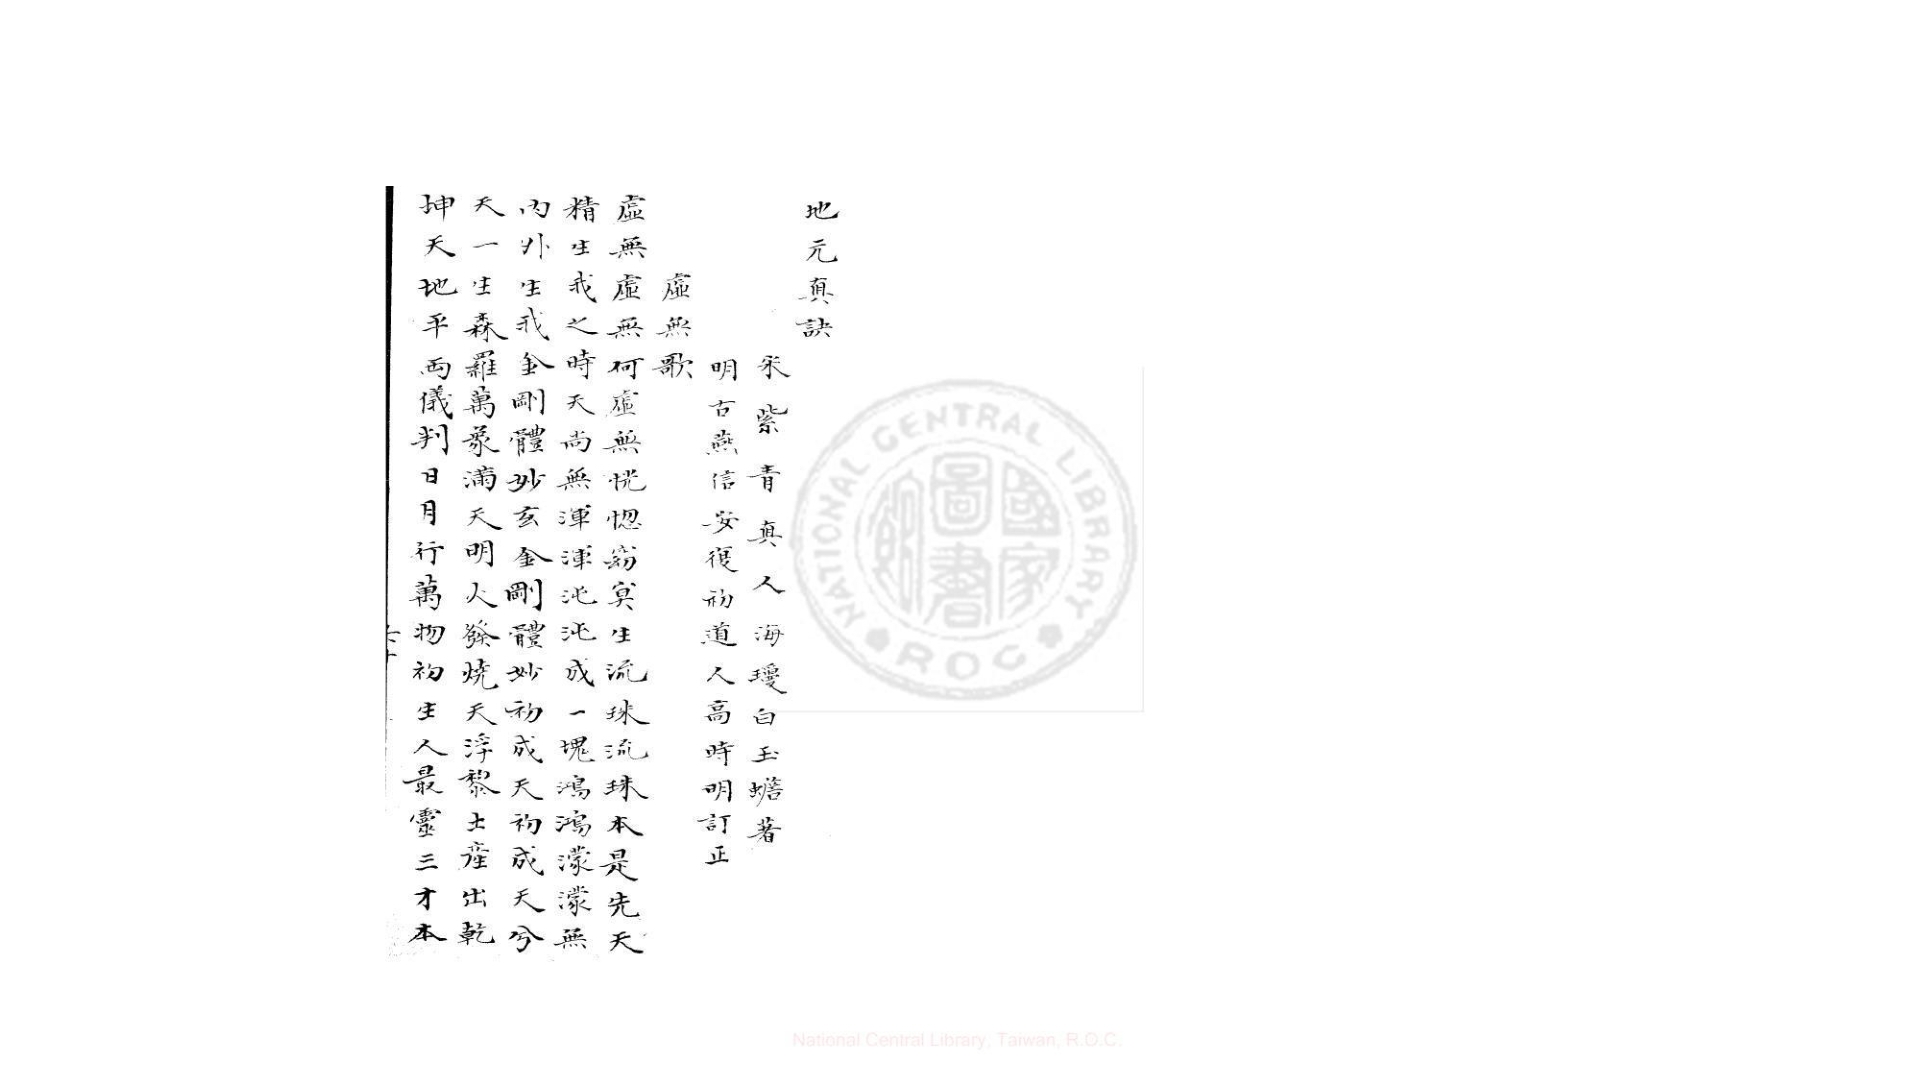 地元真訣
宋紫青真人海瓊白玉蟾著
明古燕信安復初道人高時明訂正
虛無歌
虛無虛無何虛無恍惚窈冥生流珠流珠本是先天
精生我之時天尚無渾渾沌沌成一塊鴻鴻濛濛無
內外生我金剛體妙玄金剛體妙初成天初成天兮
天一生森羅萬象滿天明火發燒天浮黎土產出乾
坤天地平兩儀判日月行萬物初生人最靈三才本
NATIONAL CENTRAL LIBRARY
ROC
國家圖書館
National Central Library, Taiwan, R.O.C.